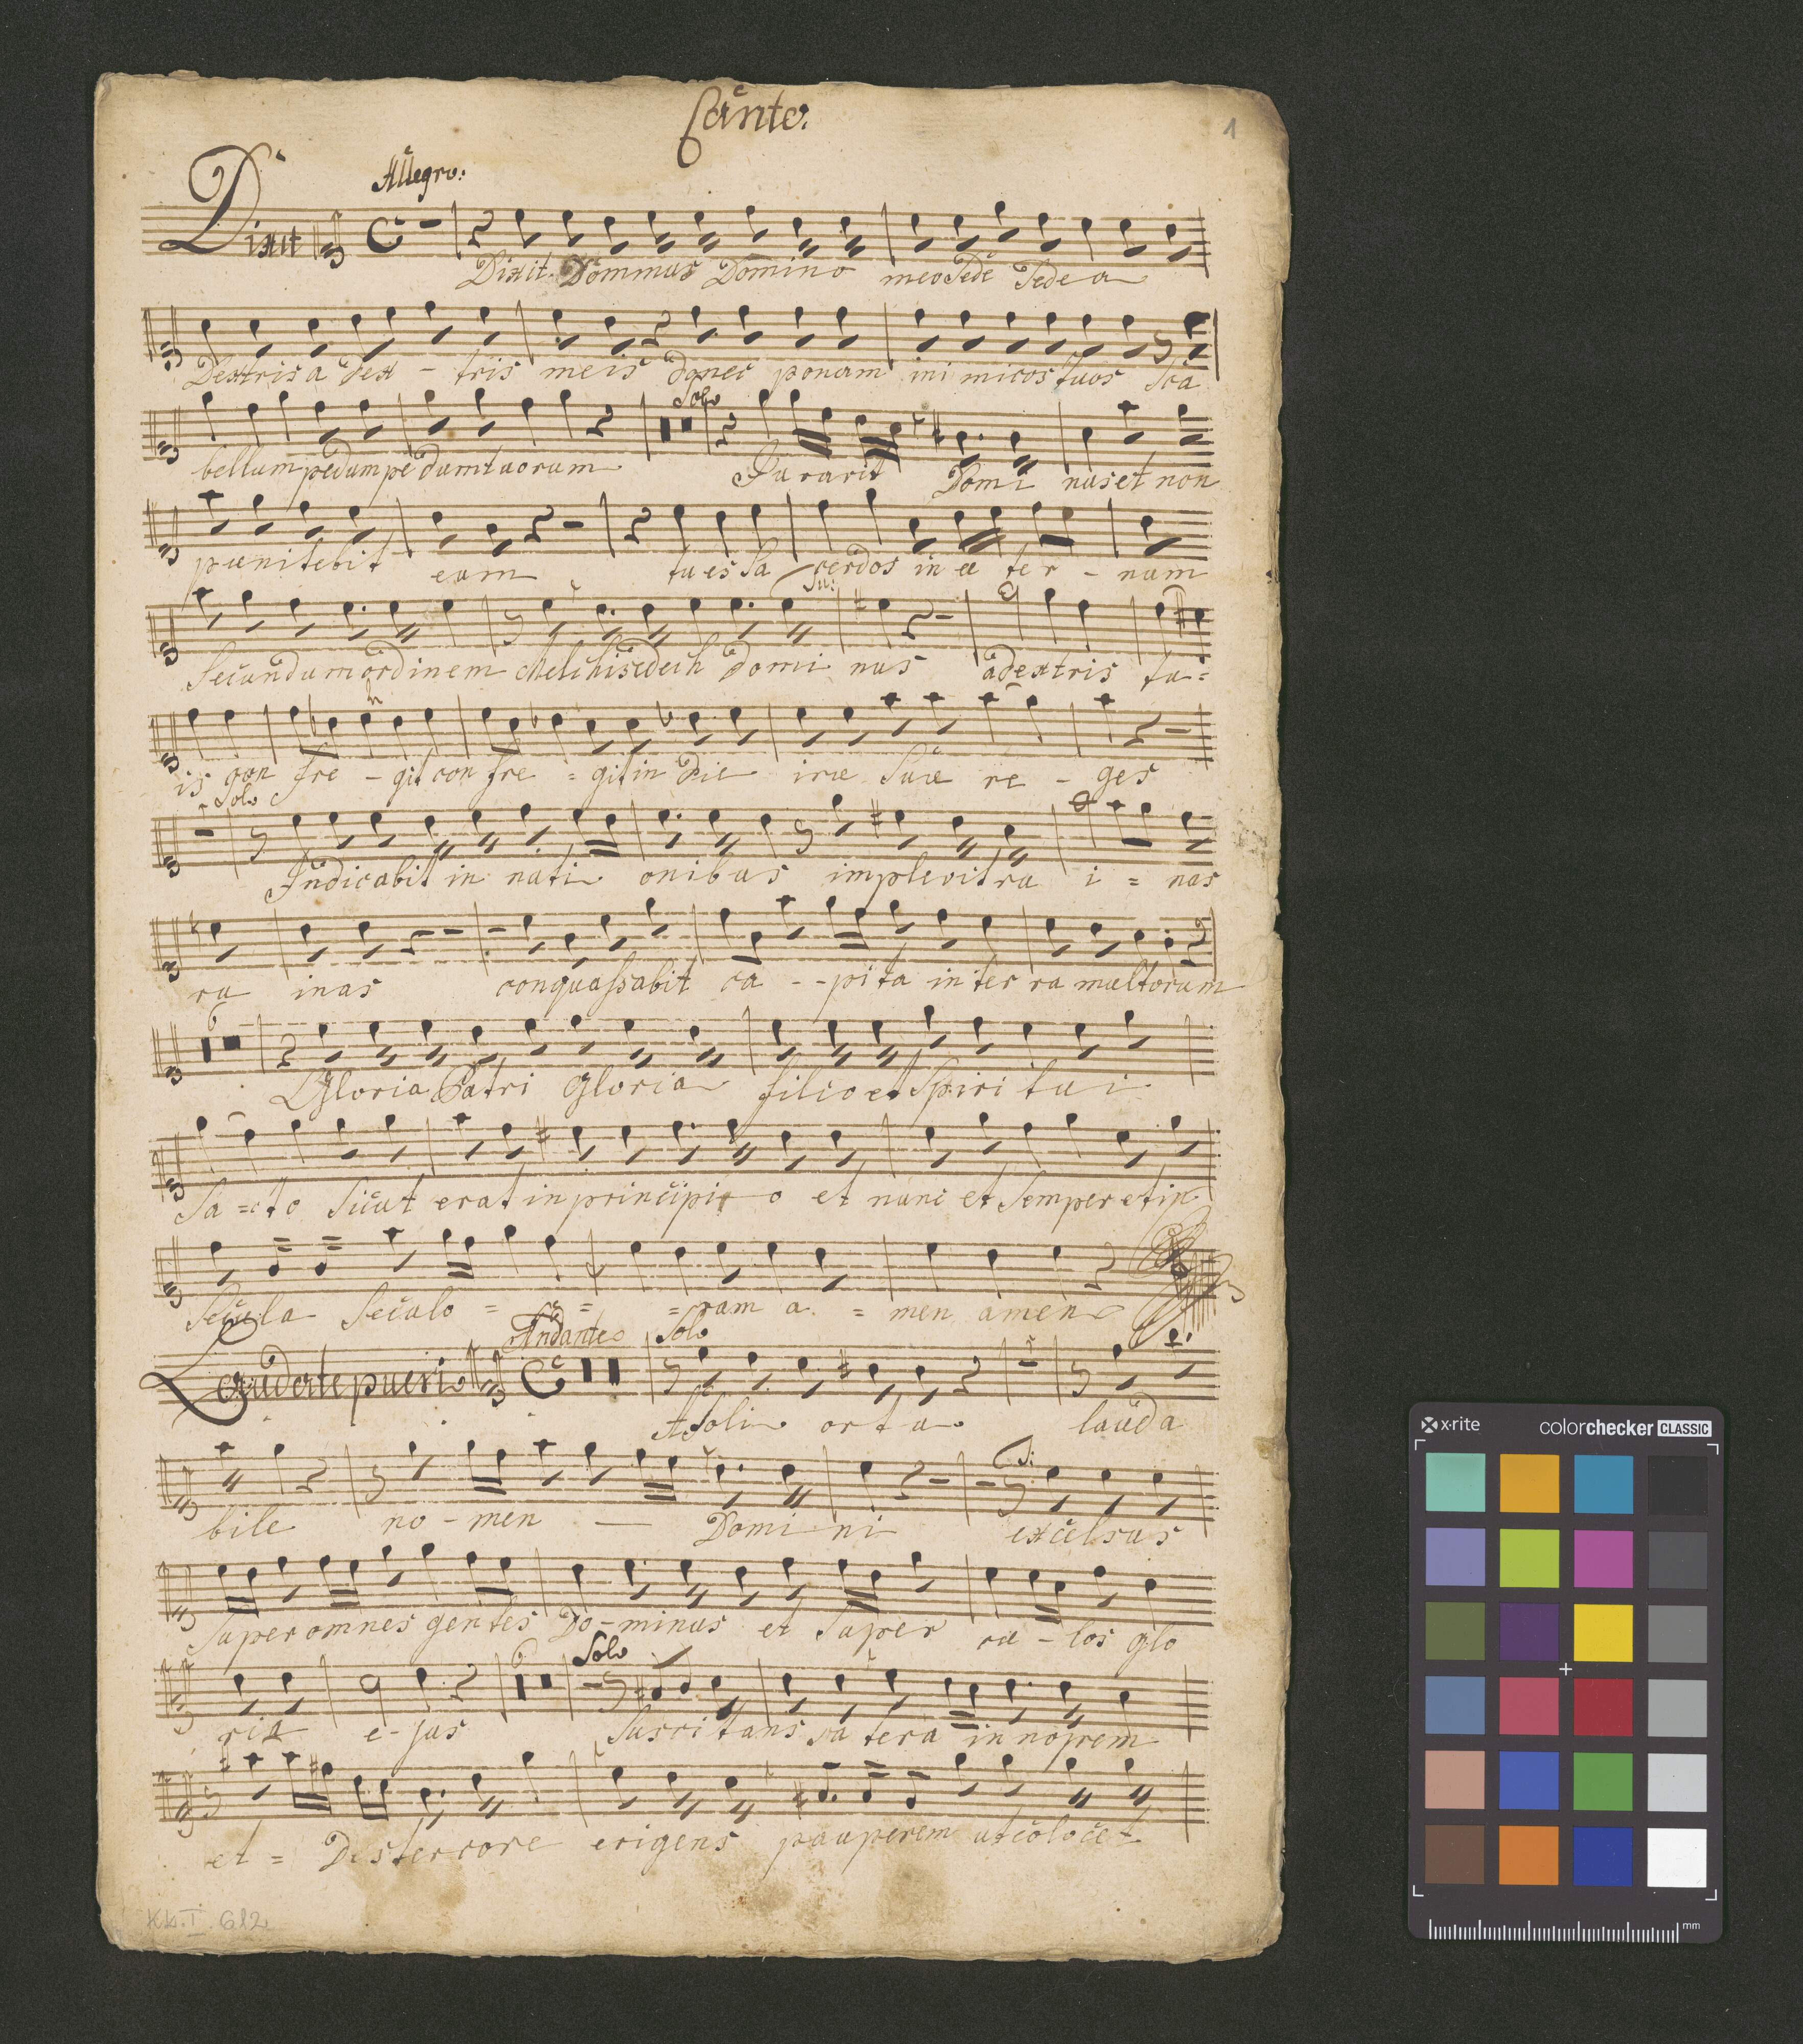 Canto.
1
Allegro:
Dixit
Dixit Dominus Domino meo Sede Sede a
Dextris a dex - tris meis donec ponam inimicos tuos Sca
Solo
bellum pedum pe dum tuorum Juravit Domi nus et non
pœnitebit eum tu es Sa cerdos in æ ter - num
Tu:
Secundum ordinem Melchisedech Domi nus a dextris tu =
is con fre - git con fre = git in Die iræ Suæ re - ges
Solo
Judicabit in nati onibus implevit ru i = nas
ru inas conquassabit ca - - pita in ter ra multorum
6
Gloria Patri Gloria filio et Spiri tui
Sa = cto Sicut erat in principi o et nunc et Semper et in
Secula Seculo = = = rum a = men amen
Laudate pueri
Andante
Solo
A Soli ortu lauda
bile no - men — Domi ni excelsus
T:
Super omnes gentes Do - minus et Super cæ - los glo
6
Solo
ria e - jus Suscitans a tera in nopem
et = De stercore erigens pauperem ut colocet
KK.I.612
x-rite
colorchecker CLASSIC
mm